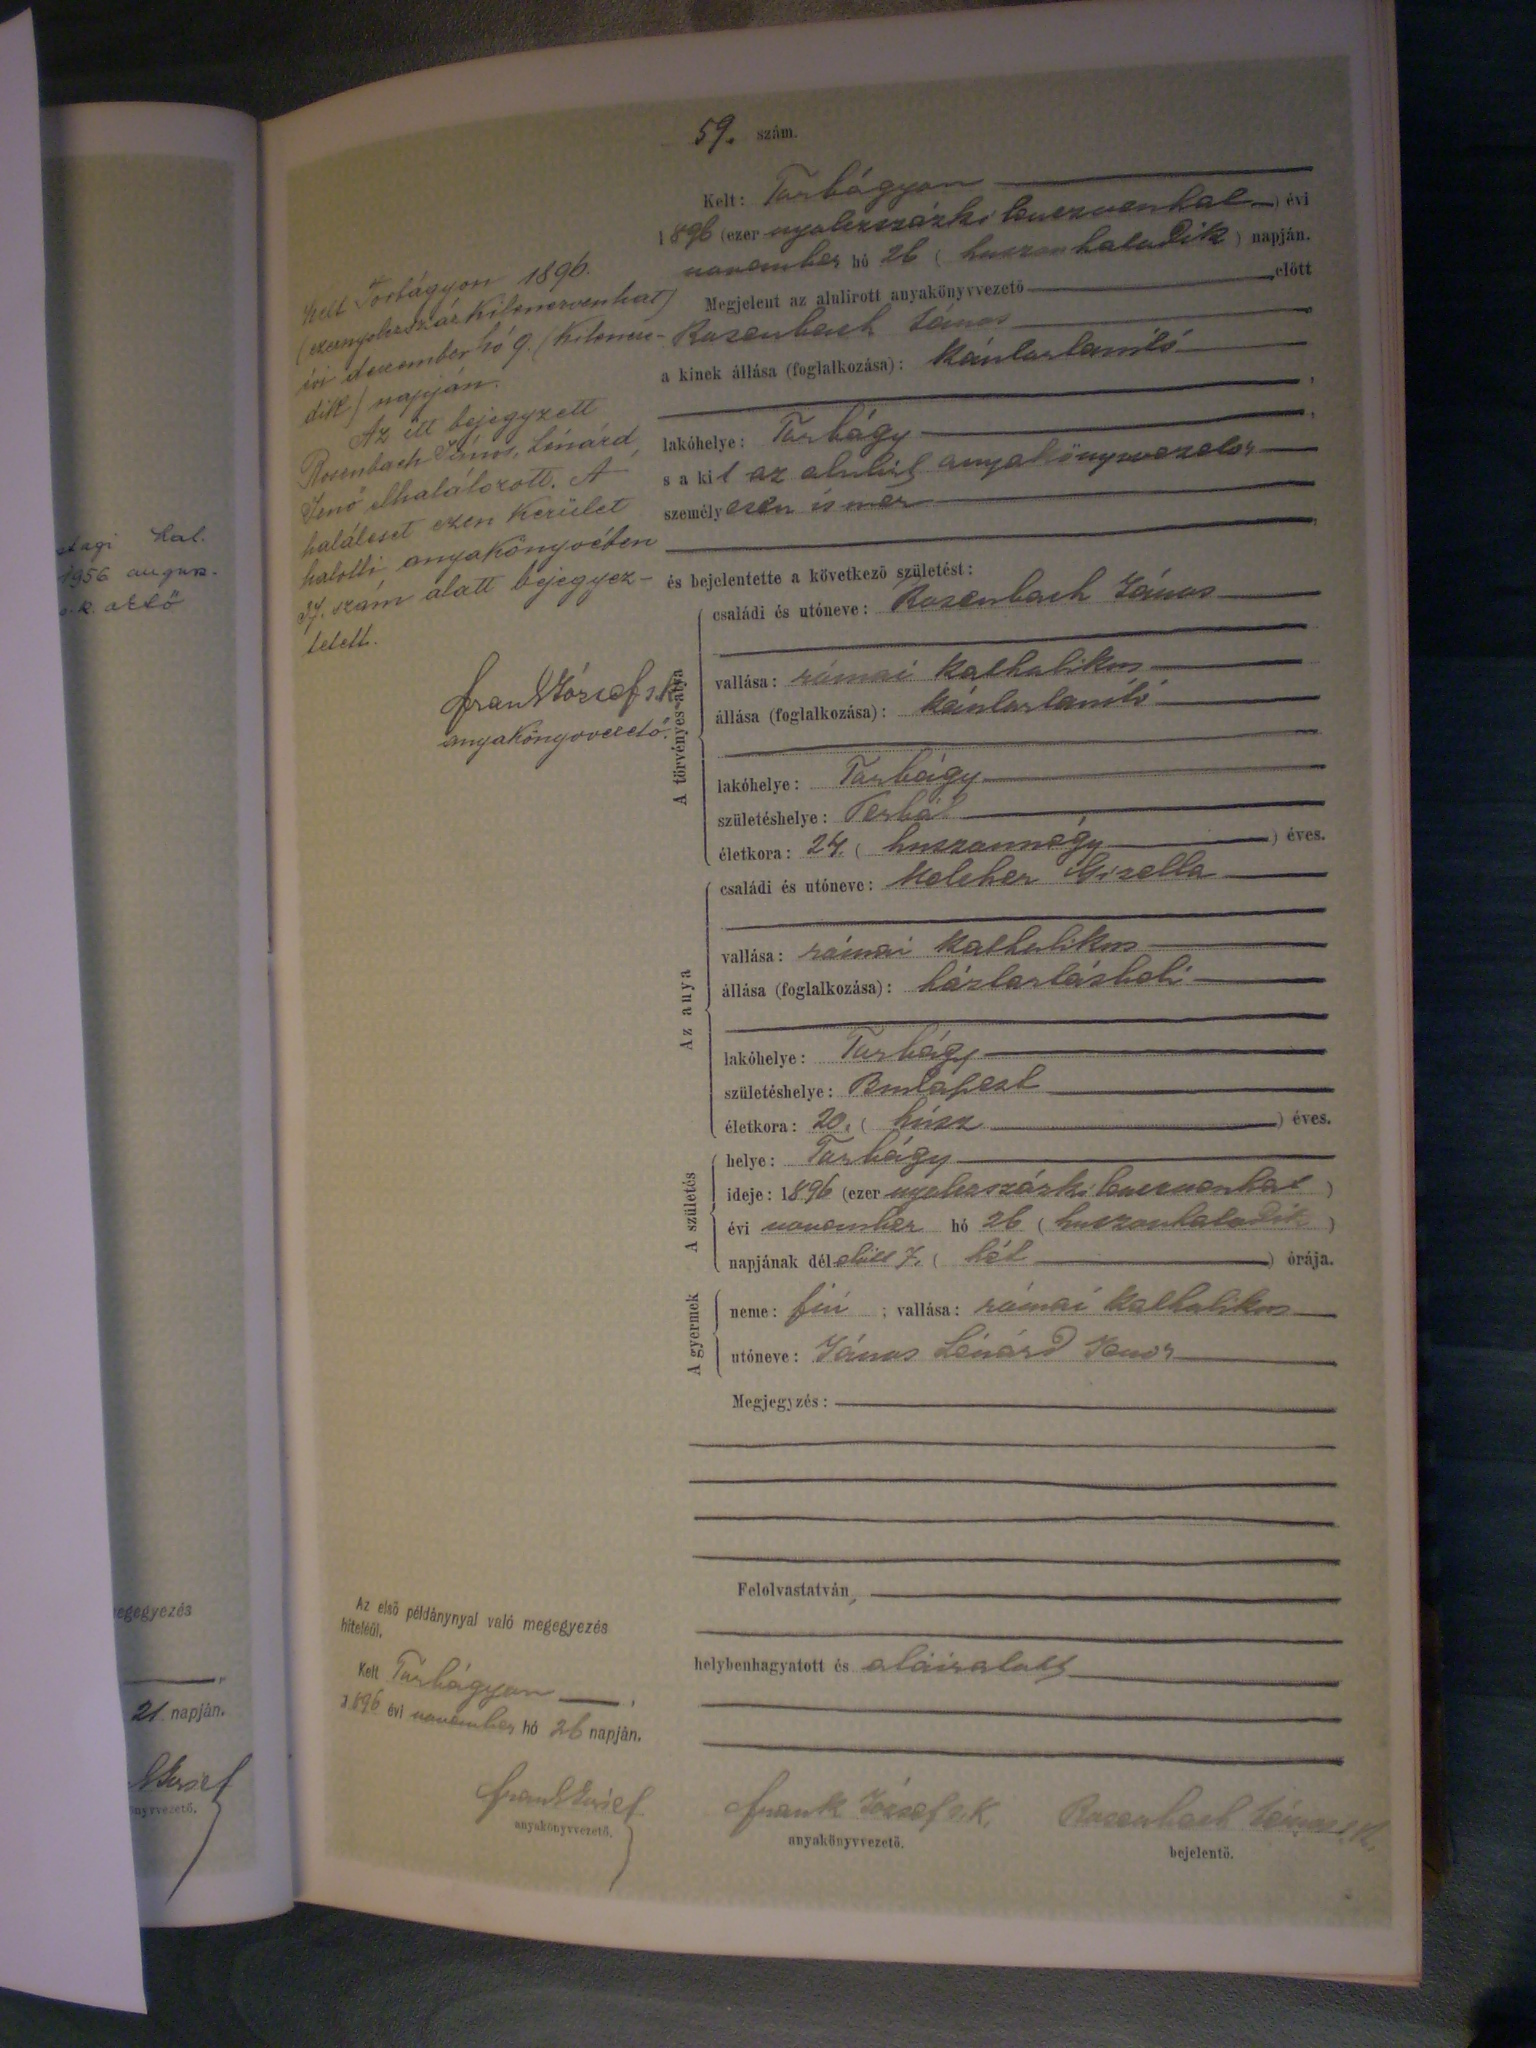 59. szám.
Kelt: Torbágyon
1896 (ezer nyolczszázkilenczvenhat) évi
november hó 26 (huszonhatodik) napján.
Megjelent az alulirott anyakönyvvezető előtt
Rosenbach János
a kinek állása (foglalkozása): kántortanító
,
lakóhelye: Torbágy ,
s a kit az alulirt anyakönyvvezető
személyesen ismer
,
és bejelentette a következő születést:
A törvényes atya
családi és utóneve: Rosenbach János
vallása: római katholikus
állása (foglalkozása): kántortanító
lakóhelye: Torbágy
születéshelye: Perbál
életkora: 24. (huszonnégy) éves.
Az anya
családi és utóneve: Melcher Gizella
vallása: római katholikus
állása (foglalkozása): háztartásbeli
lakóhelye: Torbágy
születéshelye: Budapest
életkora: 20. (húsz) éves.
A születés
helye: Torbágy
ideje: 1896 (ezer nyolczszázkilenczvenhat)
évi november hó 26 (huszonhatodik)
napjának délelőtt 7. (hét) órája.
A gyermek
neme: fiú ; vallása: római katholikus
utóneve: János Lénárd Jenő
Megjegyzés:
Felolvastatván,
helybenhagyatott és aláiratott
Frank József s.k.
anyakönyvvezető.
Rosenbach János s.k.
bejelentő.
Kelt Torbágyon 1896.
(ezernyolczszázkilenczvenhat)
évi deczember hó 9. (kilencze-
dik) napján.
Az itt bejegyzett
Rosenbach János, Lénárd,
Jenő elhalálozott. A
haláleset ezen kerület
halotti anyakönyvében
37. szám alatt bejegyez-
tetett.
Frank József s.k.
anyakönyvvezető.
Az első példánynyal való megegyezés
hiteléül.
Kelt Torbágyon ,
1896 évi november hó 26 napján.
Frank József
anyakönyvvezető.
Hal.
1956 augusz.
egegyezés
21 napján.
József
nyvvezető.